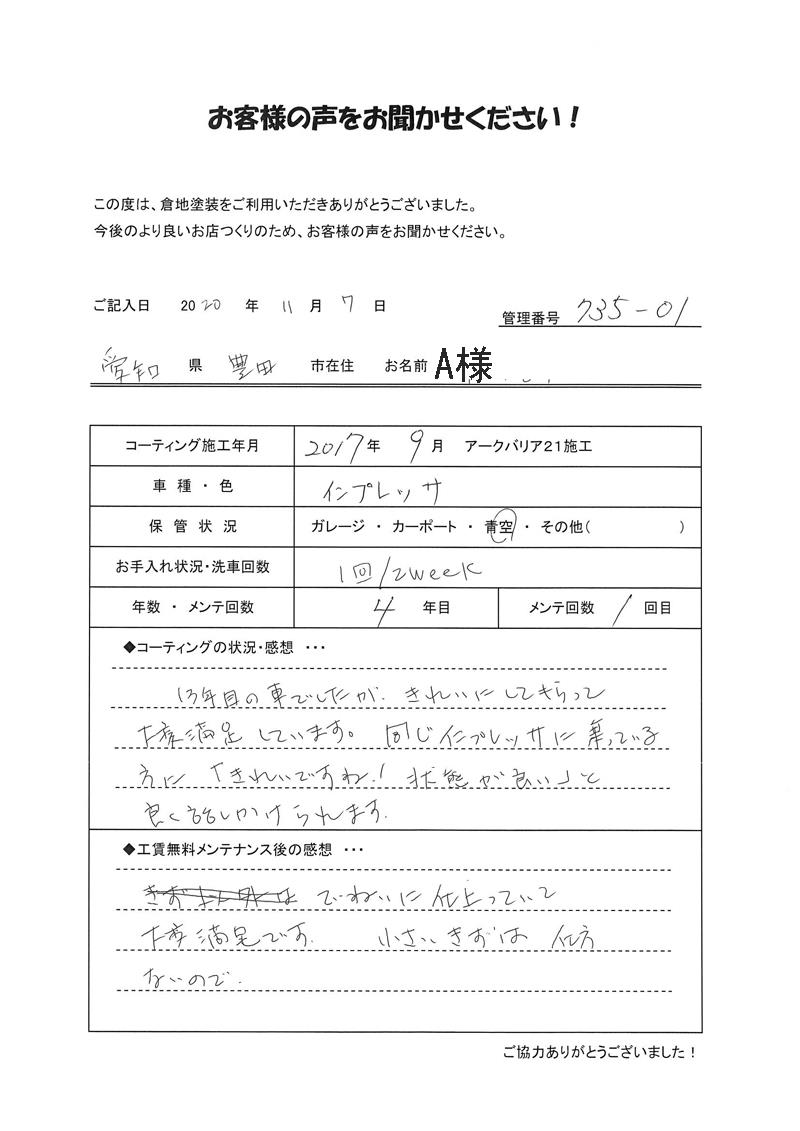 お客様の声をお聞かせください！
この度は、倉地塗装をご利用いただきありがとうございました。
今後のより良いお店つくりのため、お客様の声をお聞かせください。
ご記入日 2020 年 11 月 7 日
管理番号 735-01
愛知 県 豊田 市在住 お名前 A様
コーティング施工年月 2017年 9月 アークバリア21施工
車種・色 インプレッサ
保管状況 ガレージ ・ カーポート ・ 青空 ・ その他( )
お手入れ状況・洗車回数 1回/2week
年数 ・ メンテ回数 4 年目 メンテ回数 1 回目
◆コーティングの状況・感想 ・・・
13年目の車でしたが、きれいにしてもらって
大変満足しています。同じインプレッサに乗っている
方に「きれいですね！状態が良い」と
良く話しかけられます。
◆工賃無料メンテナンス後の感想 ・・・
でいねいに仕上っていて
大変満足です。 小さいきずは 仕方
ないので。
ご協力ありがとうございました！